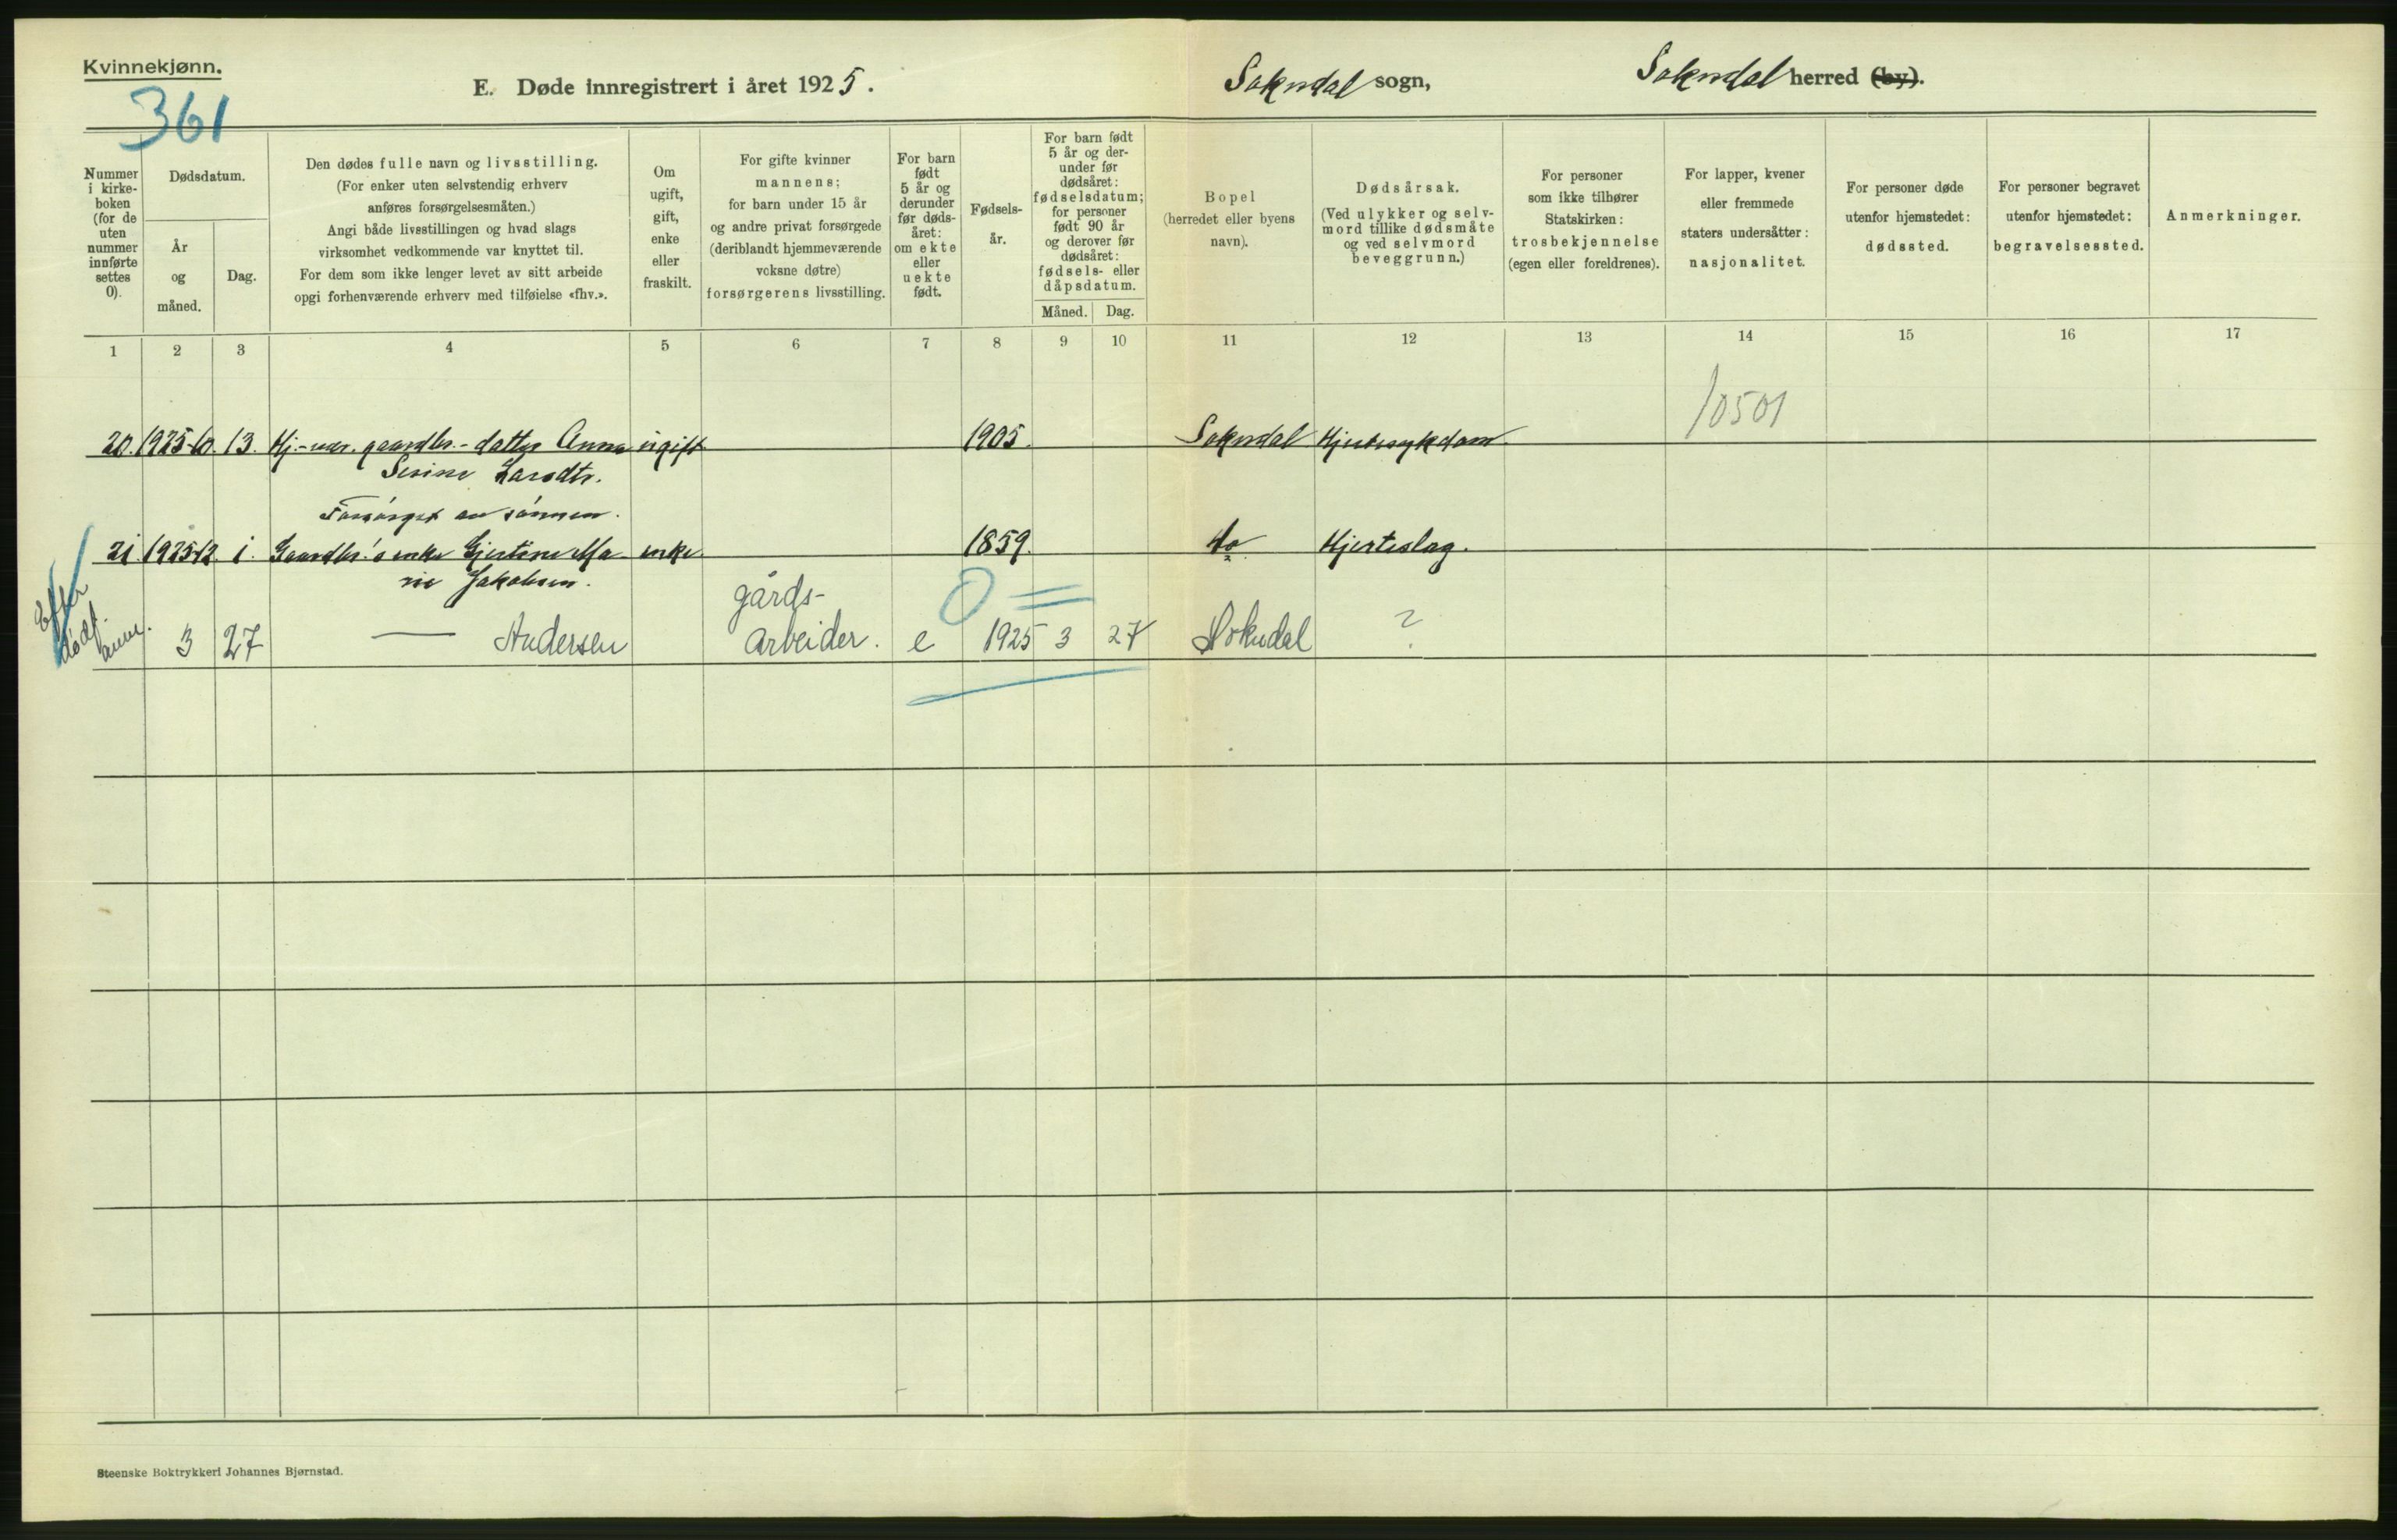 Kvinnekjønn.
361
E. Døde innregistrert i året 1925.
Sokndal sogn,
Sokndal herred (by).
Nummer
i kirke-
boken
(for de
uten
nummer
innførte
settes
0).
Dødsdatum.
År
og
måned.
Dag.
Den dødes fulle navn og livsstilling.
(For enker uten selvstendig erhverv
anføres forsørgelsesmåten.)
Angi både livsstillingen og hvad slags
virksomhet vedkommende var knyttet til.
For dem som ikke lenger levet av sitt arbeide
opgi forhenværende erhverv med tilføielse «fhv.».
Om
ugift,
gift,
enke
eller
fraskilt.
For gifte kvinner
mannens;
for barn under 15 år
og andre privat forsørgede
(deriblandt hjemmeværende
voksne døtre)
forsørgerens livsstilling.
For barn
født
5 år og
derunder
før døds-
året:
om ekte
eller
uekte
født.
Fødsels-
år.
For barn født
5 år og der-
under før
dødsåret:
fødselsdatum;
for personer
født 90 år
og derover før
dødsåret:
fødsels- eller
dåpsdatum.
Måned. Dag.
Bopel
(herredet eller byens
navn).
Dødsårsak.
(Ved ulykker og selv-
mord tillike dødsmåte
og ved selvmord
beveggrunn.)
For personer
som ikke tilhører
Statskirken:
trosbekjennelse
(egen eller foreldrenes).
For lapper, kvener
eller fremmede
staters undersåtter:
nasjonalitet.
For personer døde
utenfor hjemstedet:
dødssted.
For personer begravet
utenfor hjemstedet:
begravelsessted.
Anmerkninger.
1 2 3 4 5 6 7 8 9 10 11 12 13 14 15 16 17
10501
20. 1925-10. 13. Hj.-vær. gaardbr.-datter Anna ugift 1905. Sokndal Hjertesykdom
Serine Larsdtr.
Forsørget av sønnen.
21. 1925-12. 1. Gaardbr.'s enke Gjertine Ma- enke. 1859. do Hjerteslag.
rie Jakobsen.
Efter
dødf.
anm.
gårds-
3 27 — Andersen arbeider. e 1925 3 27 Sokndal ?
0 =
Steenske Boktrykkeri Johannes Bjørnstad.